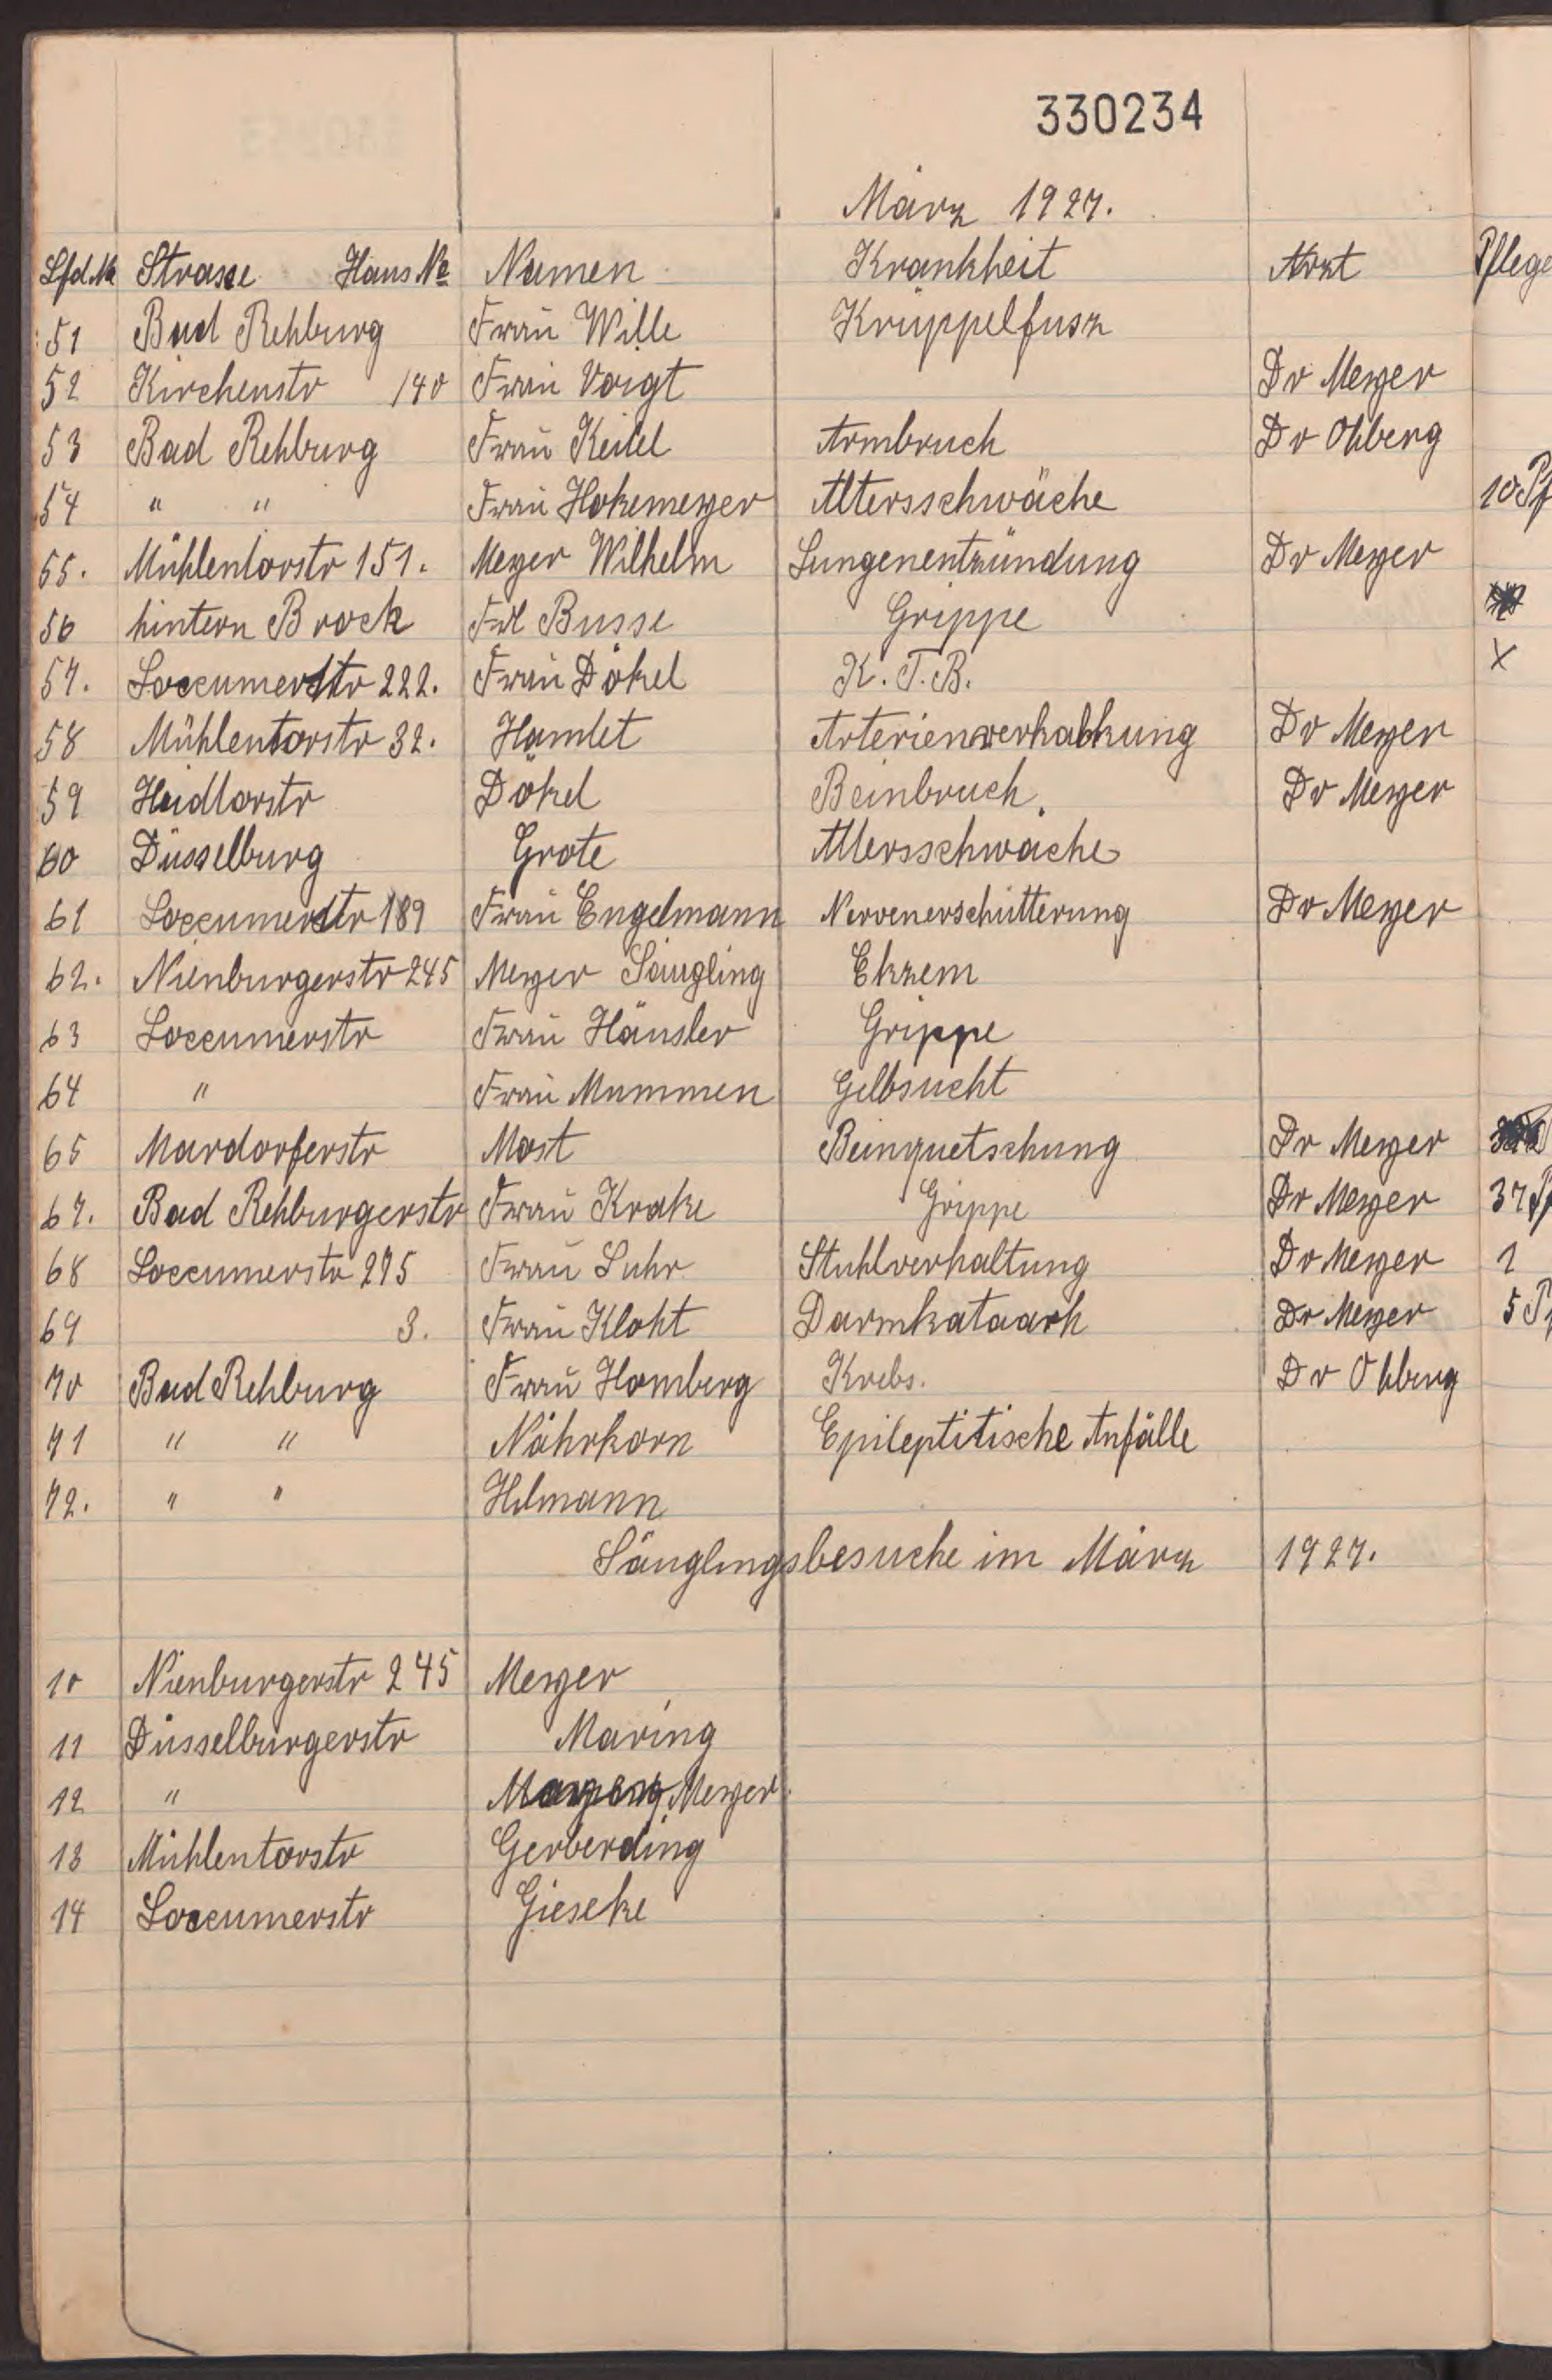 330234
März 1927.
Lfd. № Strasse Haus № Namen Krankheit Arzt Pflege
51 Bad Rehburg Frau Wille Krüppelfusz
52 Kirchenstr 140 Frau Voigt Dr Meyer
53 Bad Rehburg Frau Keitel Armbruch Dr Ohberg
54 " " Frau Hokemeyer Altersschwäche 10 Pf
55. Mühlentorstr 151. Meyer Wilhelm Lungenentzündung Dr Meyer
56 hintern Brock Frl Busse Grippe
57. Loccumerstr 222. Frau Dökel K. T. B. X
58 Mühlentorstr 32. Hamlet Arterienverkalkung Dr Meyer
59 Heidtorstr Dökel Beinbruch. Dr Meyer
60 Düsselburg Grote Altersschwäche
61 Loccumerstr 189 Frau Engelmann Nervenerschütterung Dr Meyer
62. Nienburgerstr 245 Meyer Säugling Ekzem
63 Loccumerstr Frau Häusler Grippe
64 " Frau Mummen Gelbsucht
65 Mardorferstr Most Beinquetschung Dr Meyer
67. Bad Rehburgerstr Frau Krake Grippe Dr Meyer 37 Pf
68 Loccumerstr 275 Frau Luhr Stuhlverhaltung Dr Meyer 1
69 3. Frau Kloht Darmkataarh Dr Meyer 5 Pf
70 Bad Rehburg Frau Homberg Krebs. Dr Ohberg
71 " " Nährkorn Epileptitische Anfälle
72. " " Hilmann
Säuglingsbesuche im März 1927.
10 Nienburgerstr 245 Meyer
11 Düsselburgerstr Maring
12 " Meyer
13 Mühlentorstr Gerberding
14 Loccumerstr Gieseke